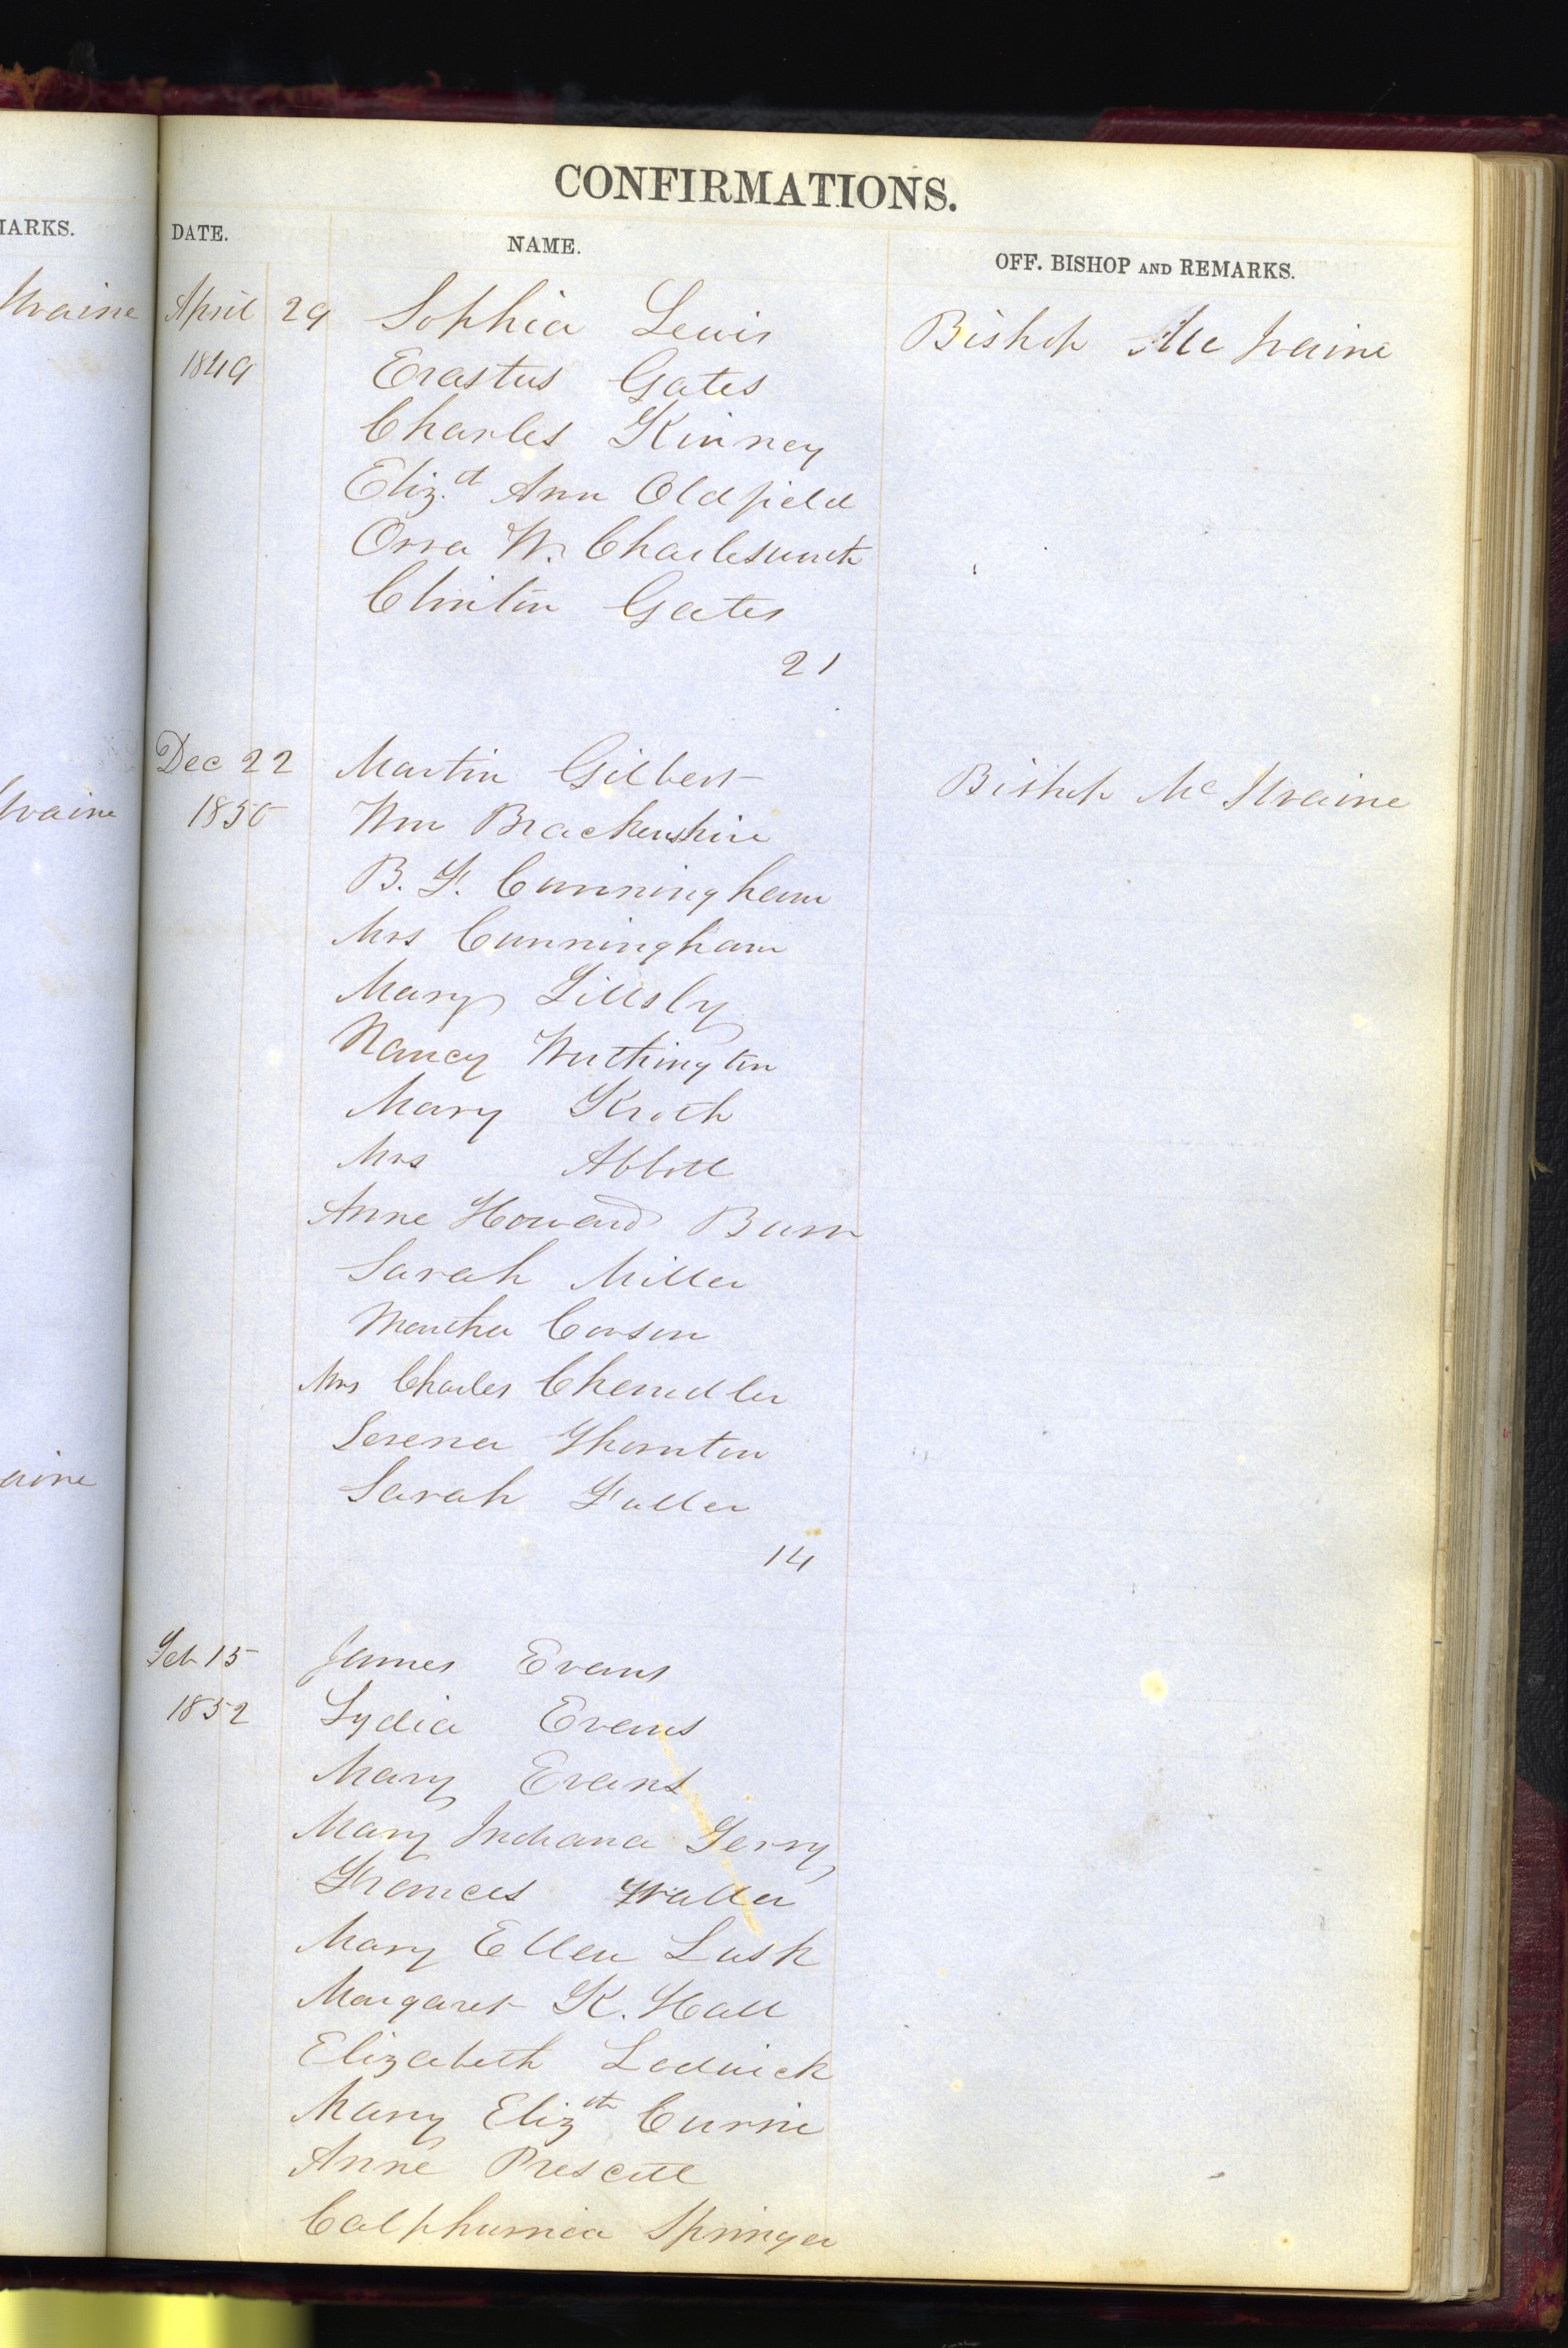 CONFIRMATIONS.
MARKS. DATE. NAME. OFF. BISHOP AND REMARKS.
April 29 Sophia Lewis Bishop Mc Ilvaine
1849 Erastus Gates
Charles Kinney
Eliz.th Ann Oldfield
Orra W. Charlesworth
Clinton Gates
21
Dec 22 Martin Gilbert Bishop Mc Ilvaine
1850 Wm Brackenshire
B. F. Cunningham
Mrs Cunningham
Mary
Nancy Worthington
Mary Kroth
Mrs Abbott
Anne Howard Burr
Sarah Miller
Martha Corson
Mrs Charles Chandler
Serena Thornton
Sarah Fuller
14
Feb 15 James Evans
1852 Lydia Evans
Mary Evans
Mary Indiana Terry
Frances Waller
Mary Ellen Lusk
Margaret K. Hall
Elizabeth Lodwick
Mary Elizth Currie
Anne Prescott
Calphurnia Springer